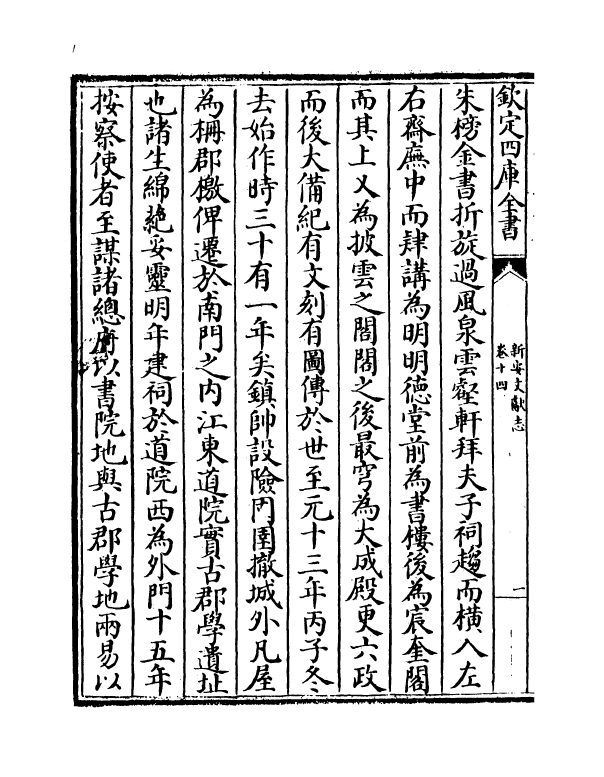 欽定四庫全書
新安文獻志
卷十四
一
朱榜金書折旋過風泉雲壑軒拜夫子祠趨而横入左
右齋廡中而肄講為明明德堂前為書樓後為宸奎閣
而其上乂為披雲之閣閣之後最穹為大成殿更六政
而後大備紀有文刻有圖傳於世至元十三年丙子冬
去始作時三十有一年矣鎮帥設險門圉撤城外凡屋
為栅郡檄俾遷於南門之内江東道院實古郡學遺址
也諸生綿蕝妥靈明年建祠於道院西為外門十五年
按察使者至謀諸總府以書院地與古郡學地兩易以